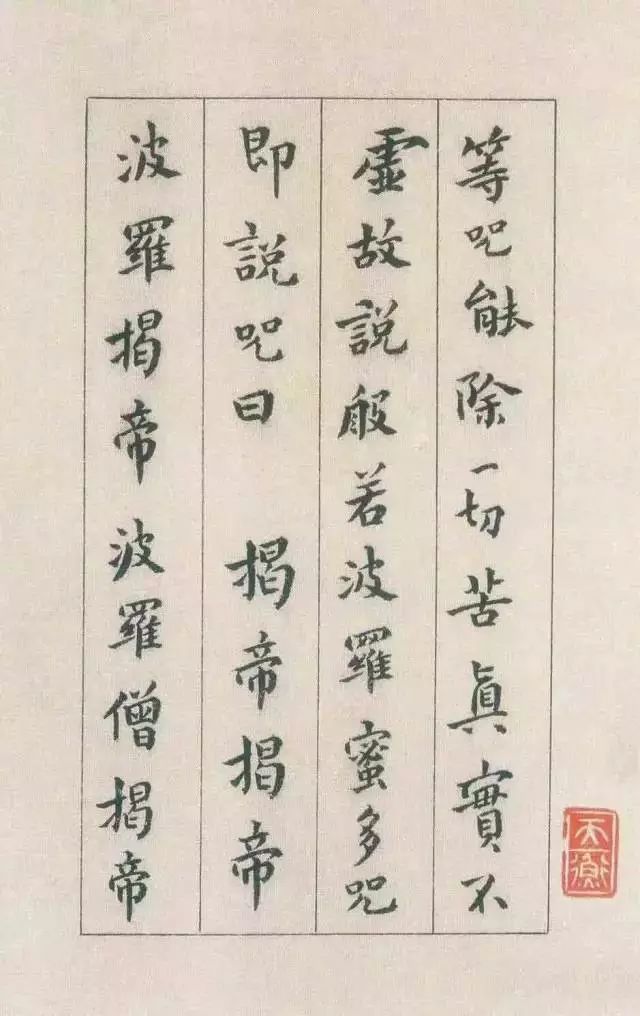 等咒能除一切苦真實不
虛故說般若波羅蜜多咒
即說咒曰 揭帝揭帝
波羅揭帝波羅僧揭帝
天衡